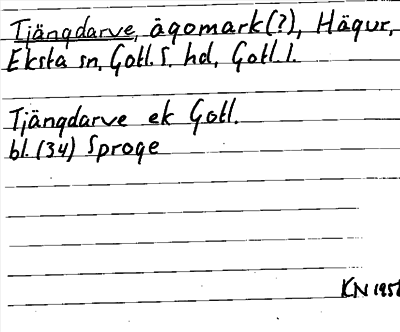 Tjängdarve, ägomark(?), Hägur,
Eksta sn, Gotl. S. hd, Gotl. l.
Tjängdarve ek Gotl.
bl. (34) Sproge
KN 1951